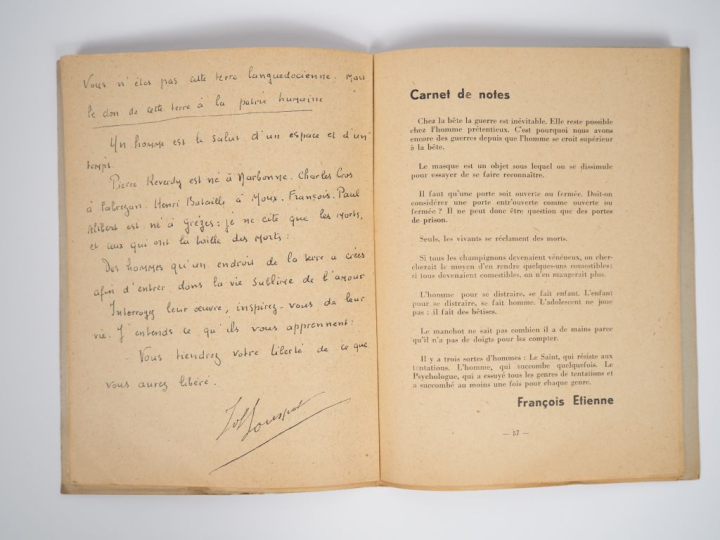 Vous n'êtes pas cette terre languedocienne. Mais
le don de cette terre à la patrie humaine
Un homme est le salut d'un espace et d'un
temps.
Pierre Reverdy est né à Narbonne. Charles Cros
à Fabrezan. Henri Bataille à Moux. François-Paul
Alibert est né à Grèzes : je ne cite que les morts,
et ceux qui ont la taille des morts :
Des hommes qu'un endroit de la terre a créés
afin d'entrer dans la vie sublime de l'amour
Interrogez leur œuvre, inspirez-vous de leur
vie. J'entends ce qu'ils vous apprennent :
- Vous tiendrez votre liberté de ce que
vous aurez libéré.
Carnet de notes
Chez la bête la guerre est inévitable. Elle reste possible
chez l'homme prétentieux. C'est pourquoi nous avons
encore des guerres depuis que l'homme se croit supérieur
à la bête.
Le masque est un objet sous lequel on se dissimule
pour essayer de se faire reconnaître.
Il faut qu'une porte soit ouverte ou fermée. Doit-on
considérer une porte entr'ouverte comme ouverte ou
fermée ? Il ne peut donc être question que des portes
de prison.
Seuls, les vivants se réclament des morts.
Si tous les champignons devenaient vénéneux, on cher-
cherait le moyen d'en rendre quelques-uns comestibles;
si tous devenaient comestibles, on n'en mangerait plus.
L'homme pour se distraire, se fait enfant. L'enfant
pour se distraire, se fait homme. L'adolescent ne joue
pas : il fait des bêtises.
Le manchot ne sait pas combien il a de mains parce
qu'il n'a pas de doigts pour les compter.
Il y a trois sortes d'hommes : Le Saint, qui résiste aux
tentations. L'homme, qui succombe quelquefois. Le
Psychologue, qui a essayé tous les genres de tentations et
a succombé au moins une fois pour chaque genre.
François Etienne
— 57 —